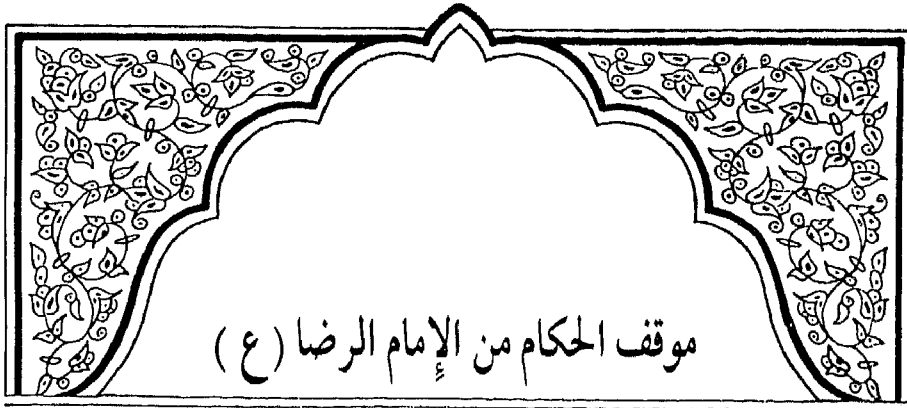 موقف الحكام من الإمام الرضا (ع)